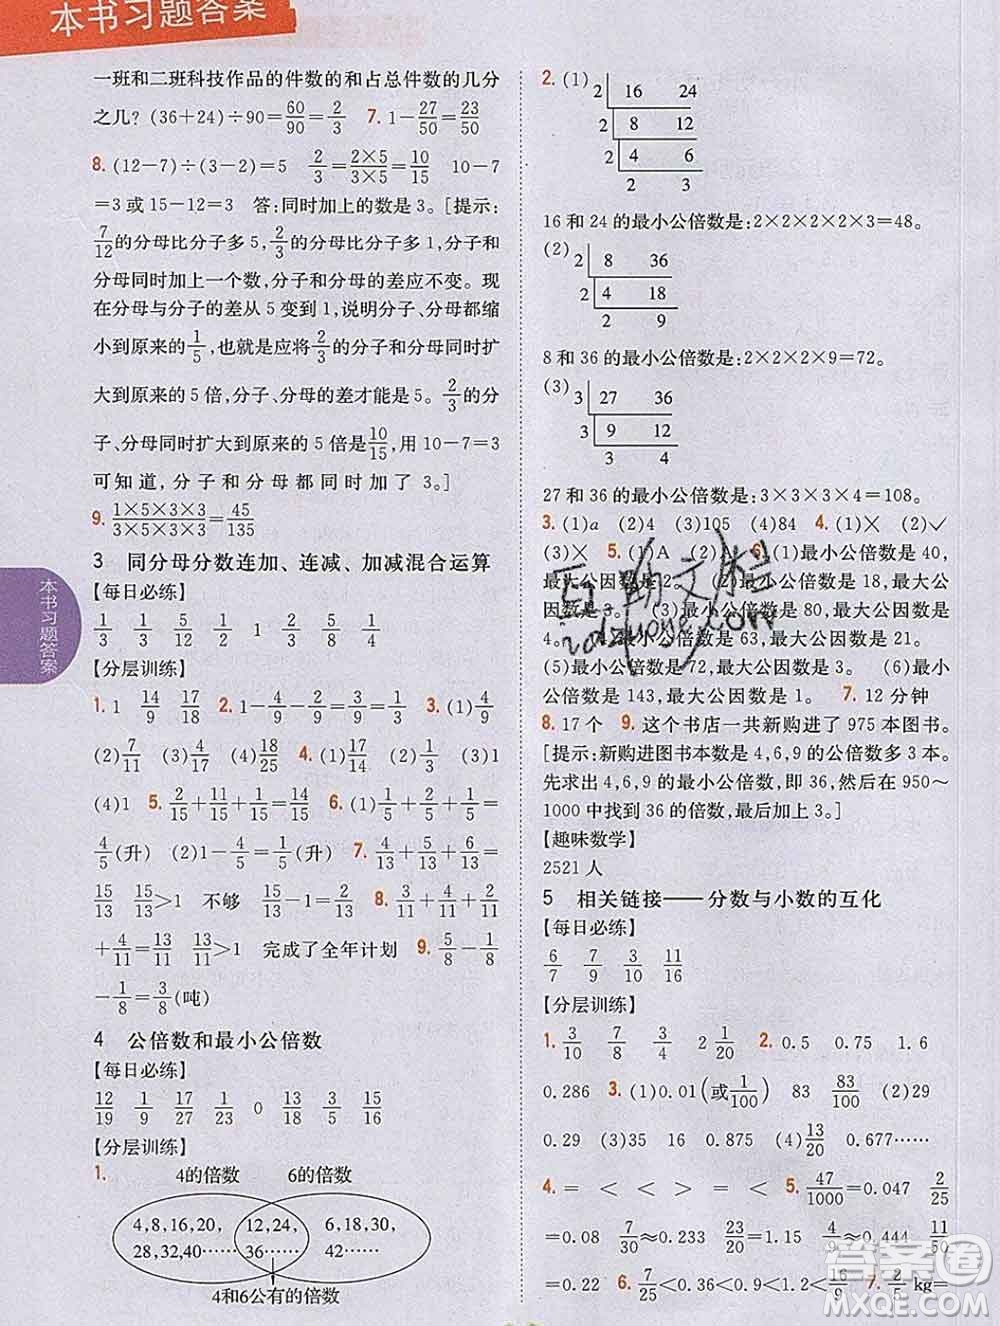 本书习题答案
一班和二班科技作品的件数的和占总件数的几分
之几? (36+24)÷90=60/90=2/3 7. 1-27/50=23/50
8. (12-7)÷(3-2)=5 2/3=2×5/3×5=10/15 10-7
=3 或 15-12=3 答:同时加上的数是 3。[提示:
7/12的分母比分子多 5,2/3的分母比分子多 1,分子和
分母同时加上一个数,分子和分母的差应不变。现
在分母与分子的差从 5 变到 1,说明分子、分母都缩
小到原来的1/5,也就是应将2/3的分子、分母同时扩
大到原来的 5 倍,分子、分母的差才能是 5。2/3的分
子、分母同时扩大到原来的 5 倍是10/15,用 10-7=3
可知道,分子和分母都同时加了 3。]
9. 1×5×3×3/3×5×3×3=45/135
3 同分母分数连加、连减、加减混合运算
【每日必练】
1/3 3/13 12/15 1 2/7 5/8 1/4
【分层训练】
1. 1 14/9 17/18 2. 1-2/9-4/9=3/9=1/3 3. (1)4/9
(2)7/11 (3)4/9 (4)18/25 4. (1)2/3 (2)1/3 (3)1
(4)1 5. 2/15+11/15+1/15=14/15 6. (1)1/5+2/5+1/5=
4/5(升) (2)1-4/5=1/5(升) 7. 4/13+6/13+5/13=
15/13 15/13>1 不够 15/13-1=2/13 8. 2/11
+4/11=13/11 13/11>1 完成了全年计划 9. 5/8-1/8
-1/8=3/8(吨)
4 公倍数和最小公倍数
【每日必练】
12/19 1/9 17/27 1/23 0 13/18 1/7
【分层训练】
1.
4的倍数 6的倍数
4,8,16,20, 12,24, 6,18,30,
28,32,40…… 36…… 42……
4和6公有的倍数
本书习题答案
2. (1) 2 16 24
2 8 12
2 4 6
2 3
16 和 24 的最小公倍数是:2×2×2×2×3=48。
(2) 2 8 36
2 4 18
2 9
8 和 36 的最小公倍数是:2×2×2×9=72。
(3) 3 27 36
3 9 12
3 4
27 和 36 的最小公倍数是:3×3×3×4=108。
3. (1)a (2)4 (3)105 (4)84 4. (1)× (2)✓
(3)× 5. (1)A (2) 6. (1)最小公倍数是 40,
最大公因数是 2 最小公倍数是 18,最大公因
数是 3。 最小公倍数是 80,最大公因数是 4。
最小公倍数是 ,最大公因数是 21。
(5)最小公倍数是 72,最大公因数是 3。 (6)最小
公倍数是 143,最大公因数是 1。 7. 12 分钟
8. 17 个 9. 这个书店一共新购进了 975 本图书。
[提示:新购进图书本数是 4,6,9 的公倍数多 3 本。
先求出 4,6,9 的最小公倍数,即 36,然后在 950~
1000 中找到 36 的倍数,最后加上 3。]
【趣味数学】
2521 人
5 相关链接——分数与小数的互化
【每日必练】
6/7 7/9 3/10 11/16
【分层训练】
1. 3/10 7/8 3/4 2 1/20 2. 0.5 0.75 1.6
0.286 3. (1)0.01(或1/100) 83 83/100 (2)29
0.29 (3)35 16 0.875 (4)13/20 0.677……
4. = < < > = < 5. 47/1000=0.047 2/25
=0.08 7/30≈0.233 23/20=1.15 4/9≈0.444 11/50
=0.22 6. 7/25<0.9<1.2<19/15 7. 2/5 kg=
答案圈
MXQE.COM